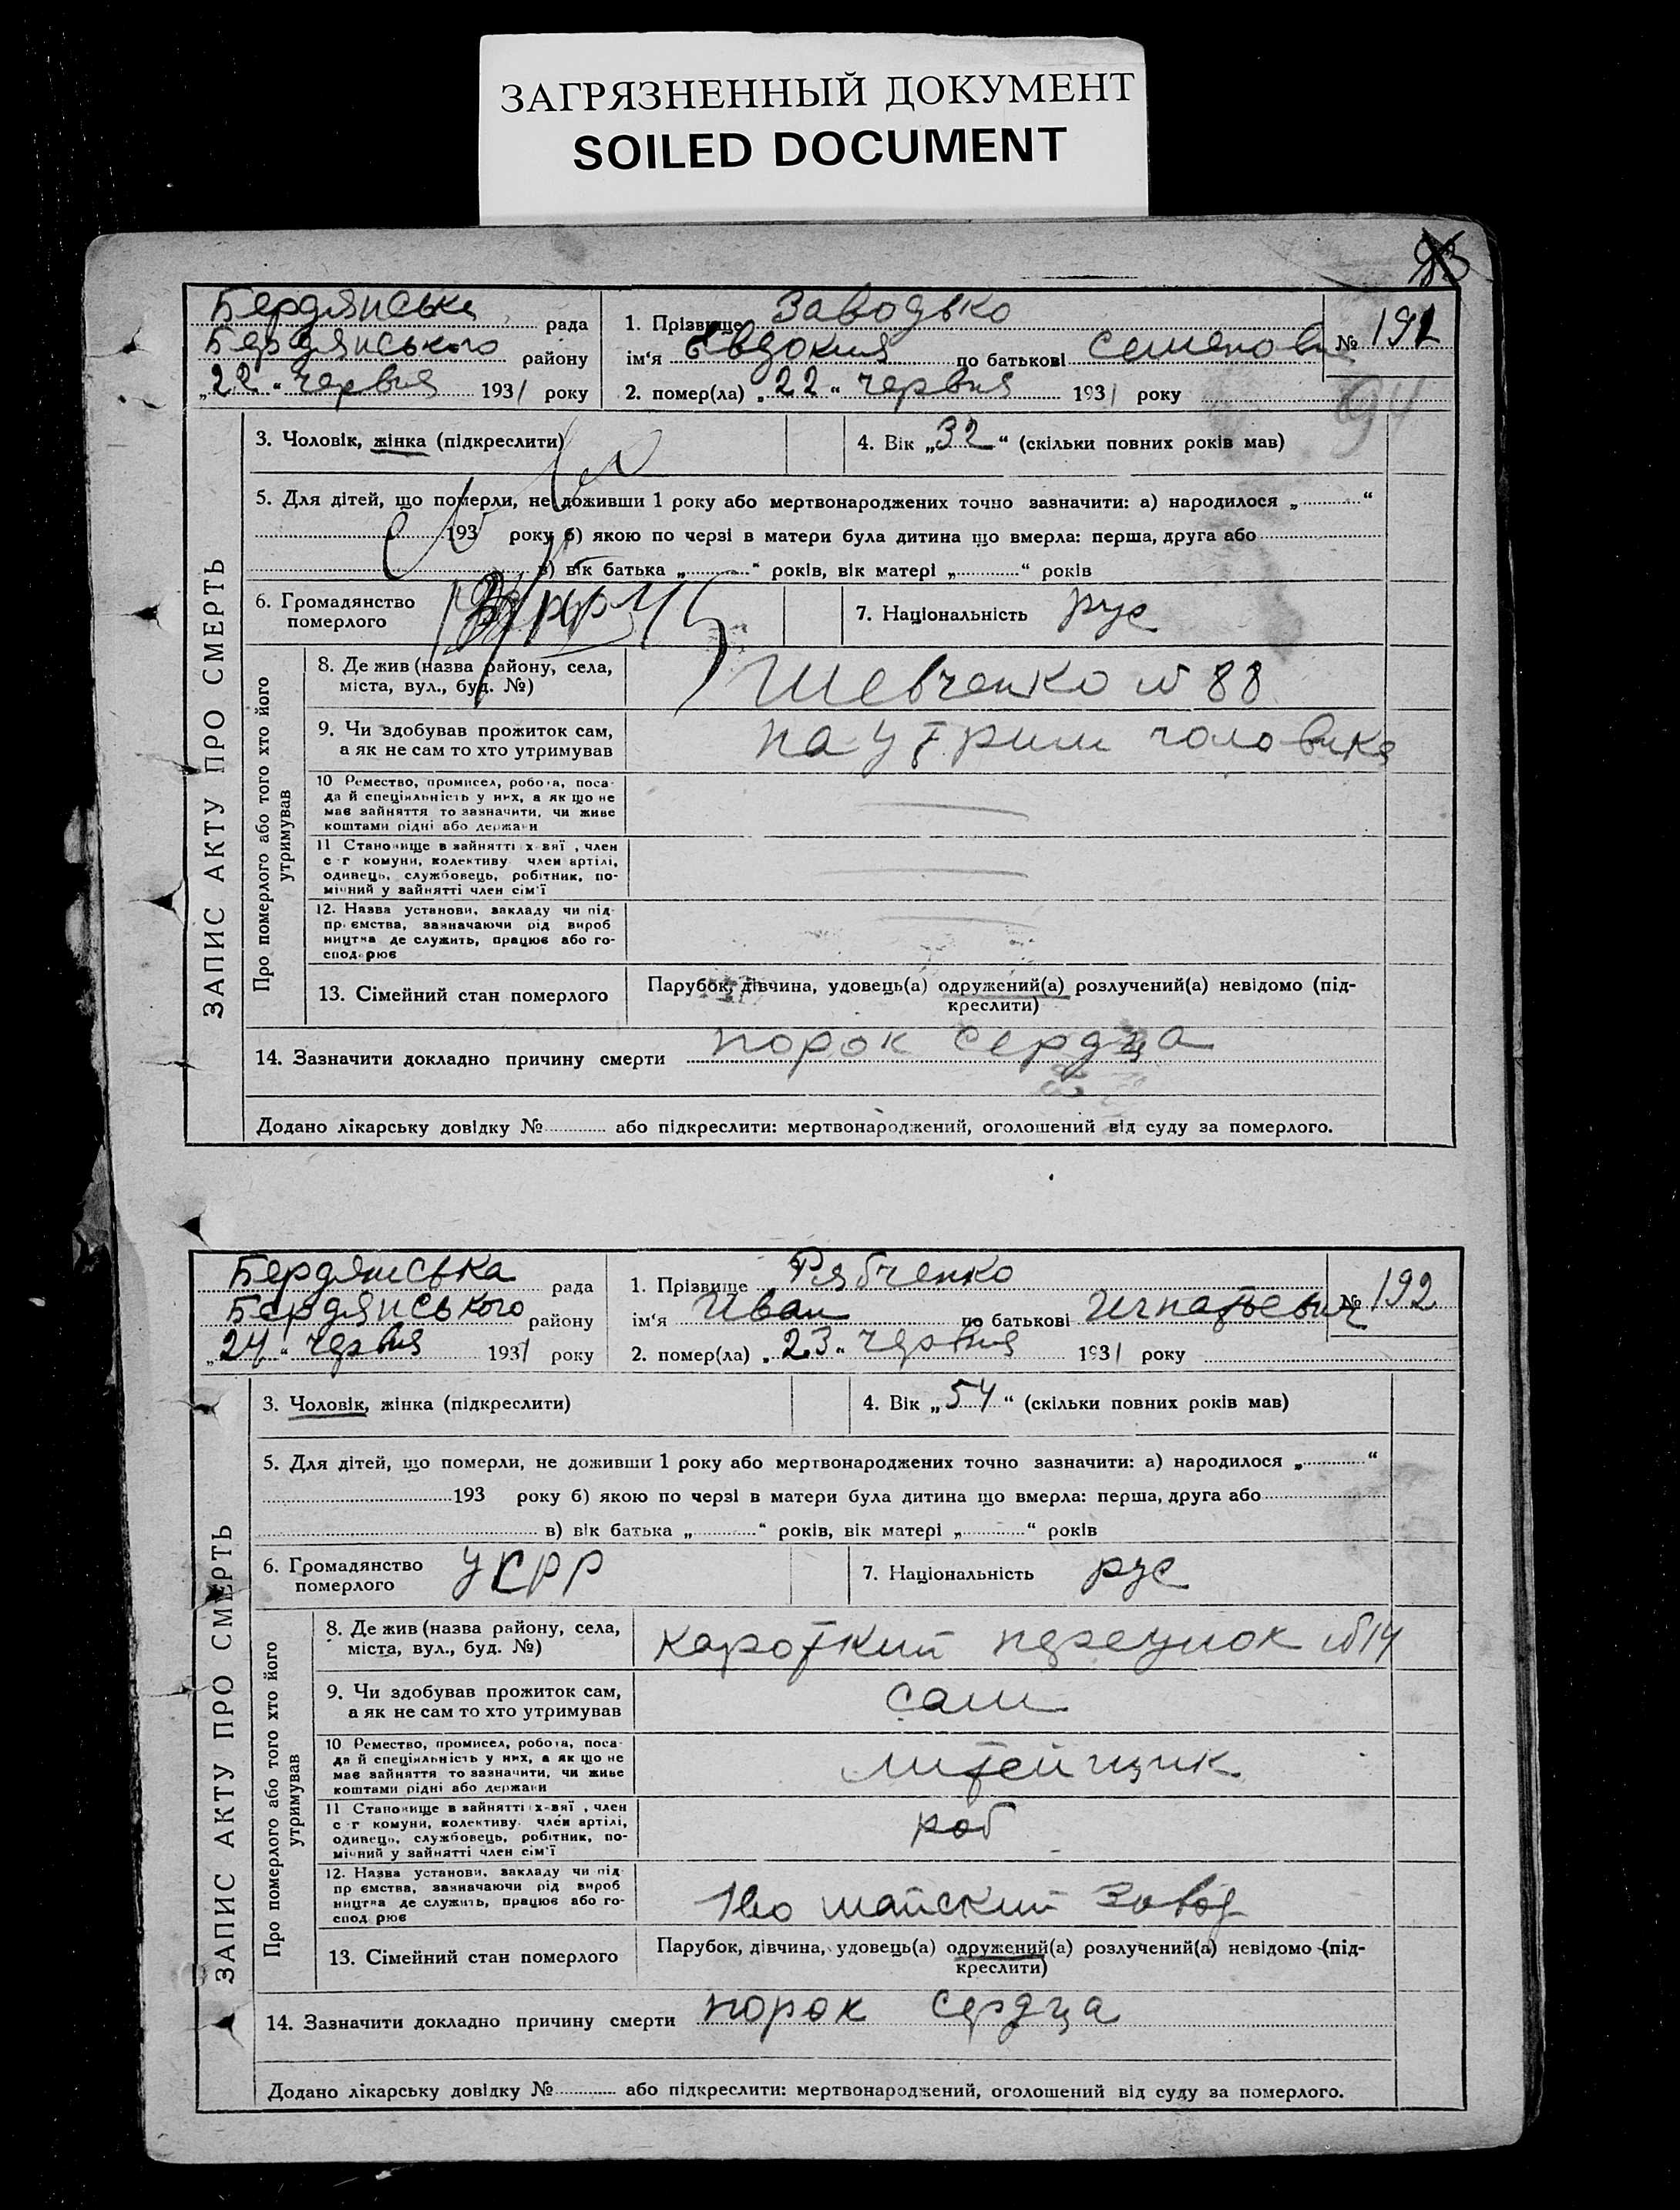 ЗАГРЯЗНЕННЫЙ ДОКУМЕНТ
SOILED DOCUMENT
83
Бердянська рада
Бердянського району
„22“ червня 1931 року
1. Прізвище Заводько
ім‘я Евдокия по батькові Семеновна
№ 191
2. помер(ла) „22“ червня 1931 року
94
3. Чоловік, жінка (підкреслити)
4. Вік „32“ (скільки повних років мав)
5. Для дітей, що померли, не доживши 1 року або мертвонароджених точно зазначити: а) народилося „ “
193 року б) якою по черзі в матери була дитина що вмерла: перша, друга або
в) вік батька „ “ років, вік матері „ “ років
6. Громадянство
померлого
7. Національність рус
ЗАПИС АКТУ ПРО СМЕРТЬ
Про померлого або того хто його
утримував
8. Де жив (назва району, села,
міста, вул., буд. №)
Шевченко № 88
9. Чи здобував прожиток сам,
а як не сам то хто утримував
на утрим чоловика
10 Ремество, промисел, робота, поса-
да й спеціяльність у них, а як що не
має зайняття то зазначити, чи живе
коштами рідні або держави
11 Становище в зайнятті х-вяї , член
с г комуни, колективу член артілі,
одинець, службовець, робітник, по-
мічний у зайнятті член сім'ї
12. Назва установи, закладу чи під-
пр ємства, зазначаючи рід вироб
ництва де служить, працює або го-
сподарює
13. Сімейний стан померлого
Парубок, дівчина, удовець(а) одружений(а) розлучений(а) невідомо (під-
креслити)
14. Зазначити докладно причину смерти порок сердца
Додано лікарську довідку № або підкреслити: мертвонароджений, оголошений від суду за померлого.
Бердянська рада
Бердянського району
„24“ червня 1931 року
1. Прізвище Рябченко
ім‘я Иван по батькові Игнатьевич
№ 192
2. помер(ла) „23“ червня 1931 року
3. Чоловік, жінка (підкреслити)
4. Вік „54“ (скільки повних років мав)
5. Для дітей, що померли, не доживши 1 року або мертвонароджених точно зазначити: а) народилося „ “
193 року б) якою по черзі в матери була дитина що вмерла: перша, друга або
в) вік батька „ “ років, вік матері „ “ років
6. Громадянство
померлого
УСРР
7. Національність рус
ЗАПИС АКТУ ПРО СМЕРТЬ
Про померлого або того хто його
утримував
8. Де жив (назва району, села,
міста, вул., буд. №)
кароткий переулок № 14
9. Чи здобував прожиток сам,
а як не сам то хто утримував
сам
10 Ремество, промисел, робота, поса-
да й спеціяльність у них, а як що не
має зайняття то зазначити, чи живе
коштами рідні або держави
литейщик
11 Становище в зайнятті х-вяї , член
с г комуни, колективу член артілі,
одинець, службовець, робітник, по-
мічний у зайнятті член сім'ї
роб
12. Назва установи, закладу чи під-
пр ємства, зазначаючи рід вироб
ництва де служить, працює або го-
спод рює
1во майский завод
13. Сімейний стан померлого
Парубок, дівчина, удовець(а) одружений(а) розлучений(а) невідомо (під-
креслити)
14. Зазначити докладно причину смерти порок сердца
Додано лікарську довідку № або підкреслити: мертвонароджений, оголошений від суду за померлого.